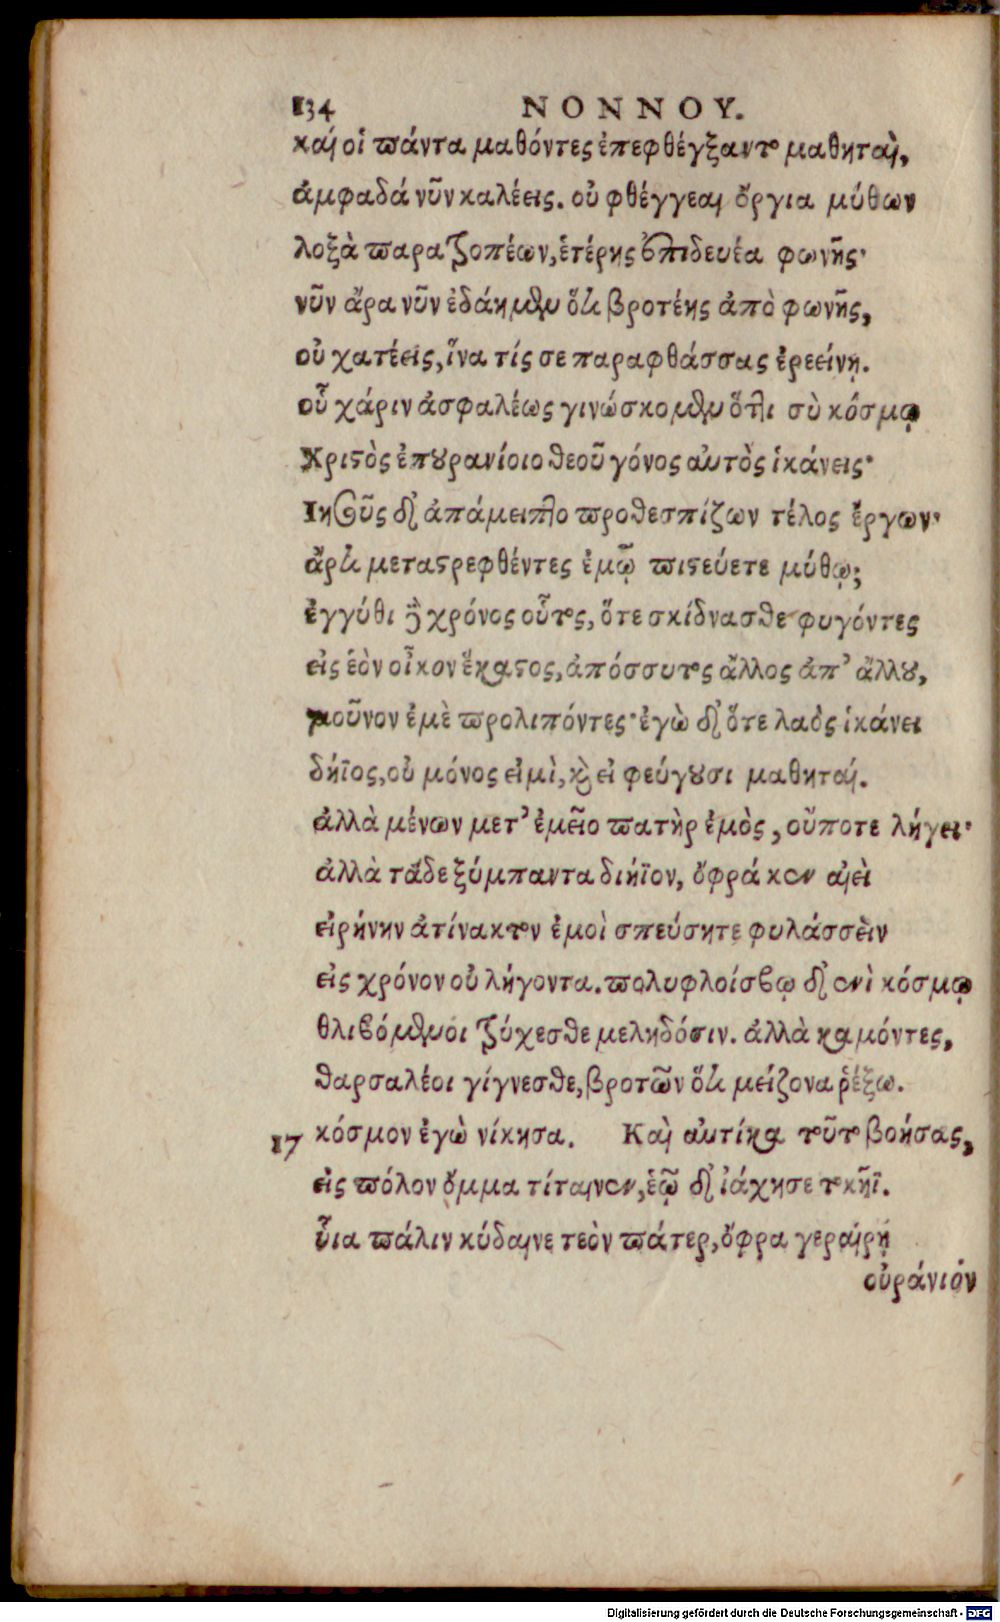 134 ΝΟΝΝΟΥ.
καί οἱ πάντα μαθόντες ἐπεφθέγξαντο μαθηταὶ,
ἀμφαδά νῦν καλέεις. οὐ φθέγγεαι ὄργια μύθων
λοξὰ παρατροπέων, ἑτέρης ἐπιδευέα φωνῆς·
νῦν ἄρα νῦν ἐδάημεν ὅτι βροτέης ἀπὸ φωνῆς,
οὐ χατέεις, ἵνα τίς σε παραφθάσσας ἐρεείνῃ.
οὗ χάριν ἀσφαλέως γινώσκομεν ὅττι σὺ κόσμῳ
Χριστὸς ἐπουρανίοιο θεοῦ γόνος αὐτὸς ἱκάνεις·
Ιησοῦς δ' ἀπάμειπτο προθεσπίζων τέλος ἔργων·
ἄρτι μεταστρεφθέντες ἐμῷ πιστεύετε μύθῳ;
ἐγγύθι γὰρ χρόνος οὗτος, ὅτε σκίδνασθε φυγόντες
εἰς ἑὸν οἶκον ἕκαστος, ἀπόσσυτος ἄλλος ἀπ' ἄλλου,
μοῦνον ἐμὲ προλιπόντες· ἐγὼ δ' ὅτε λαὸς ἱκάνει
δήϊος, οὐ μόνος εἰμὶ, καὶ εἰ φεύγουσι μαθηταί.
ἀλλὰ μένων μετ' ἐμεῖο πατὴρ ἐμὸς, οὔποτε λήγει·
ἀλλὰ τάδε ξύμπαντα διήϊον, ὄφρά κεν αἰεὶ
εἰρήνην ἀτίνακτον ἐμοὶ σπεύσητε φυλάσσειν
εἰς χρόνον οὐ λήγοντα. πολυφλοίσβῳ δ' ἐνὶ κόσμῳ
θλιβόμενοι τρύχεσθε μεληδόσιν. ἀλλὰ καμόντες,
θαρσαλέοι γίγνεσθε, βροτῶν ὅτι μείζονα ῥέξω.
17 κόσμον ἐγὼ νίκησα. Καὶ αὐτίκα τοῦτο βοήσας,
εἰς πόλον ὄμμα τίταινεν, ἑῷ δ' ἰάχησε τοκῆϊ.
υἷα πάλιν κύδαινε τεὸν πάτερ, ὄφρα γεραίρῃ
οὐράνιόν
Digitalisierung gefördert durch die Deutsche Forschungsgemeinschaft - DFG